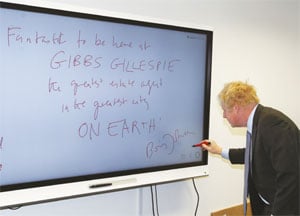 Fantastic to be here at
GIBBS GILLESPIE
the greatest estate agent
in the greatest city
ON EARTH!
Boris Johnson